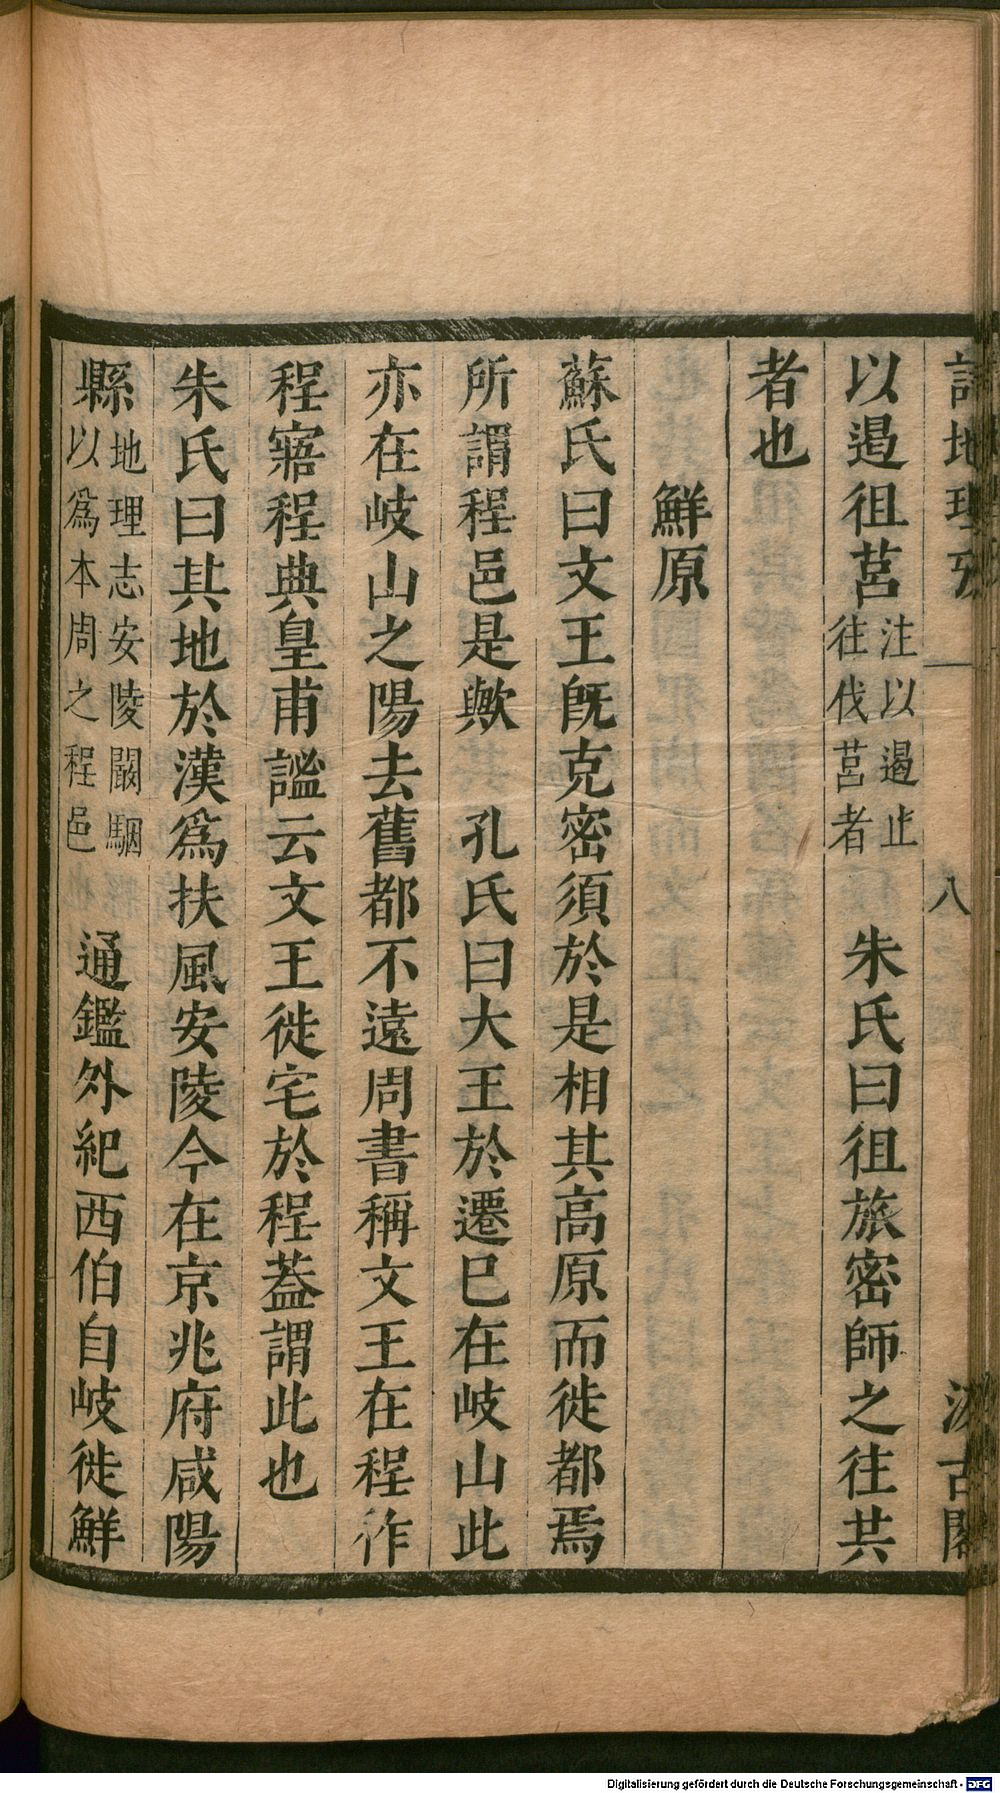 詩地理攷 八 汲古閣
以遏徂莒注以遏止往伐莒者 朱氏曰徂旅密師之往共
者也
鮮原
蘇氏曰文王旣克密須於是相其高原而徙都焉
所謂程邑是歟 孔氏曰大王於遷已在岐山此
亦在岐山之陽去舊都不遠周書稱文王在程作
程寤程典皇甫謐云文王徙宅於程葢謂此也
朱氏曰其地於漢爲扶風安陵今在京兆府咸陽
縣地理志安陵闞駰以爲本周之程邑 通鑑外紀西伯自岐徙鮮
Digitalisierung gefördert durch die Deutsche Forschungsgemeinschaft - DFG